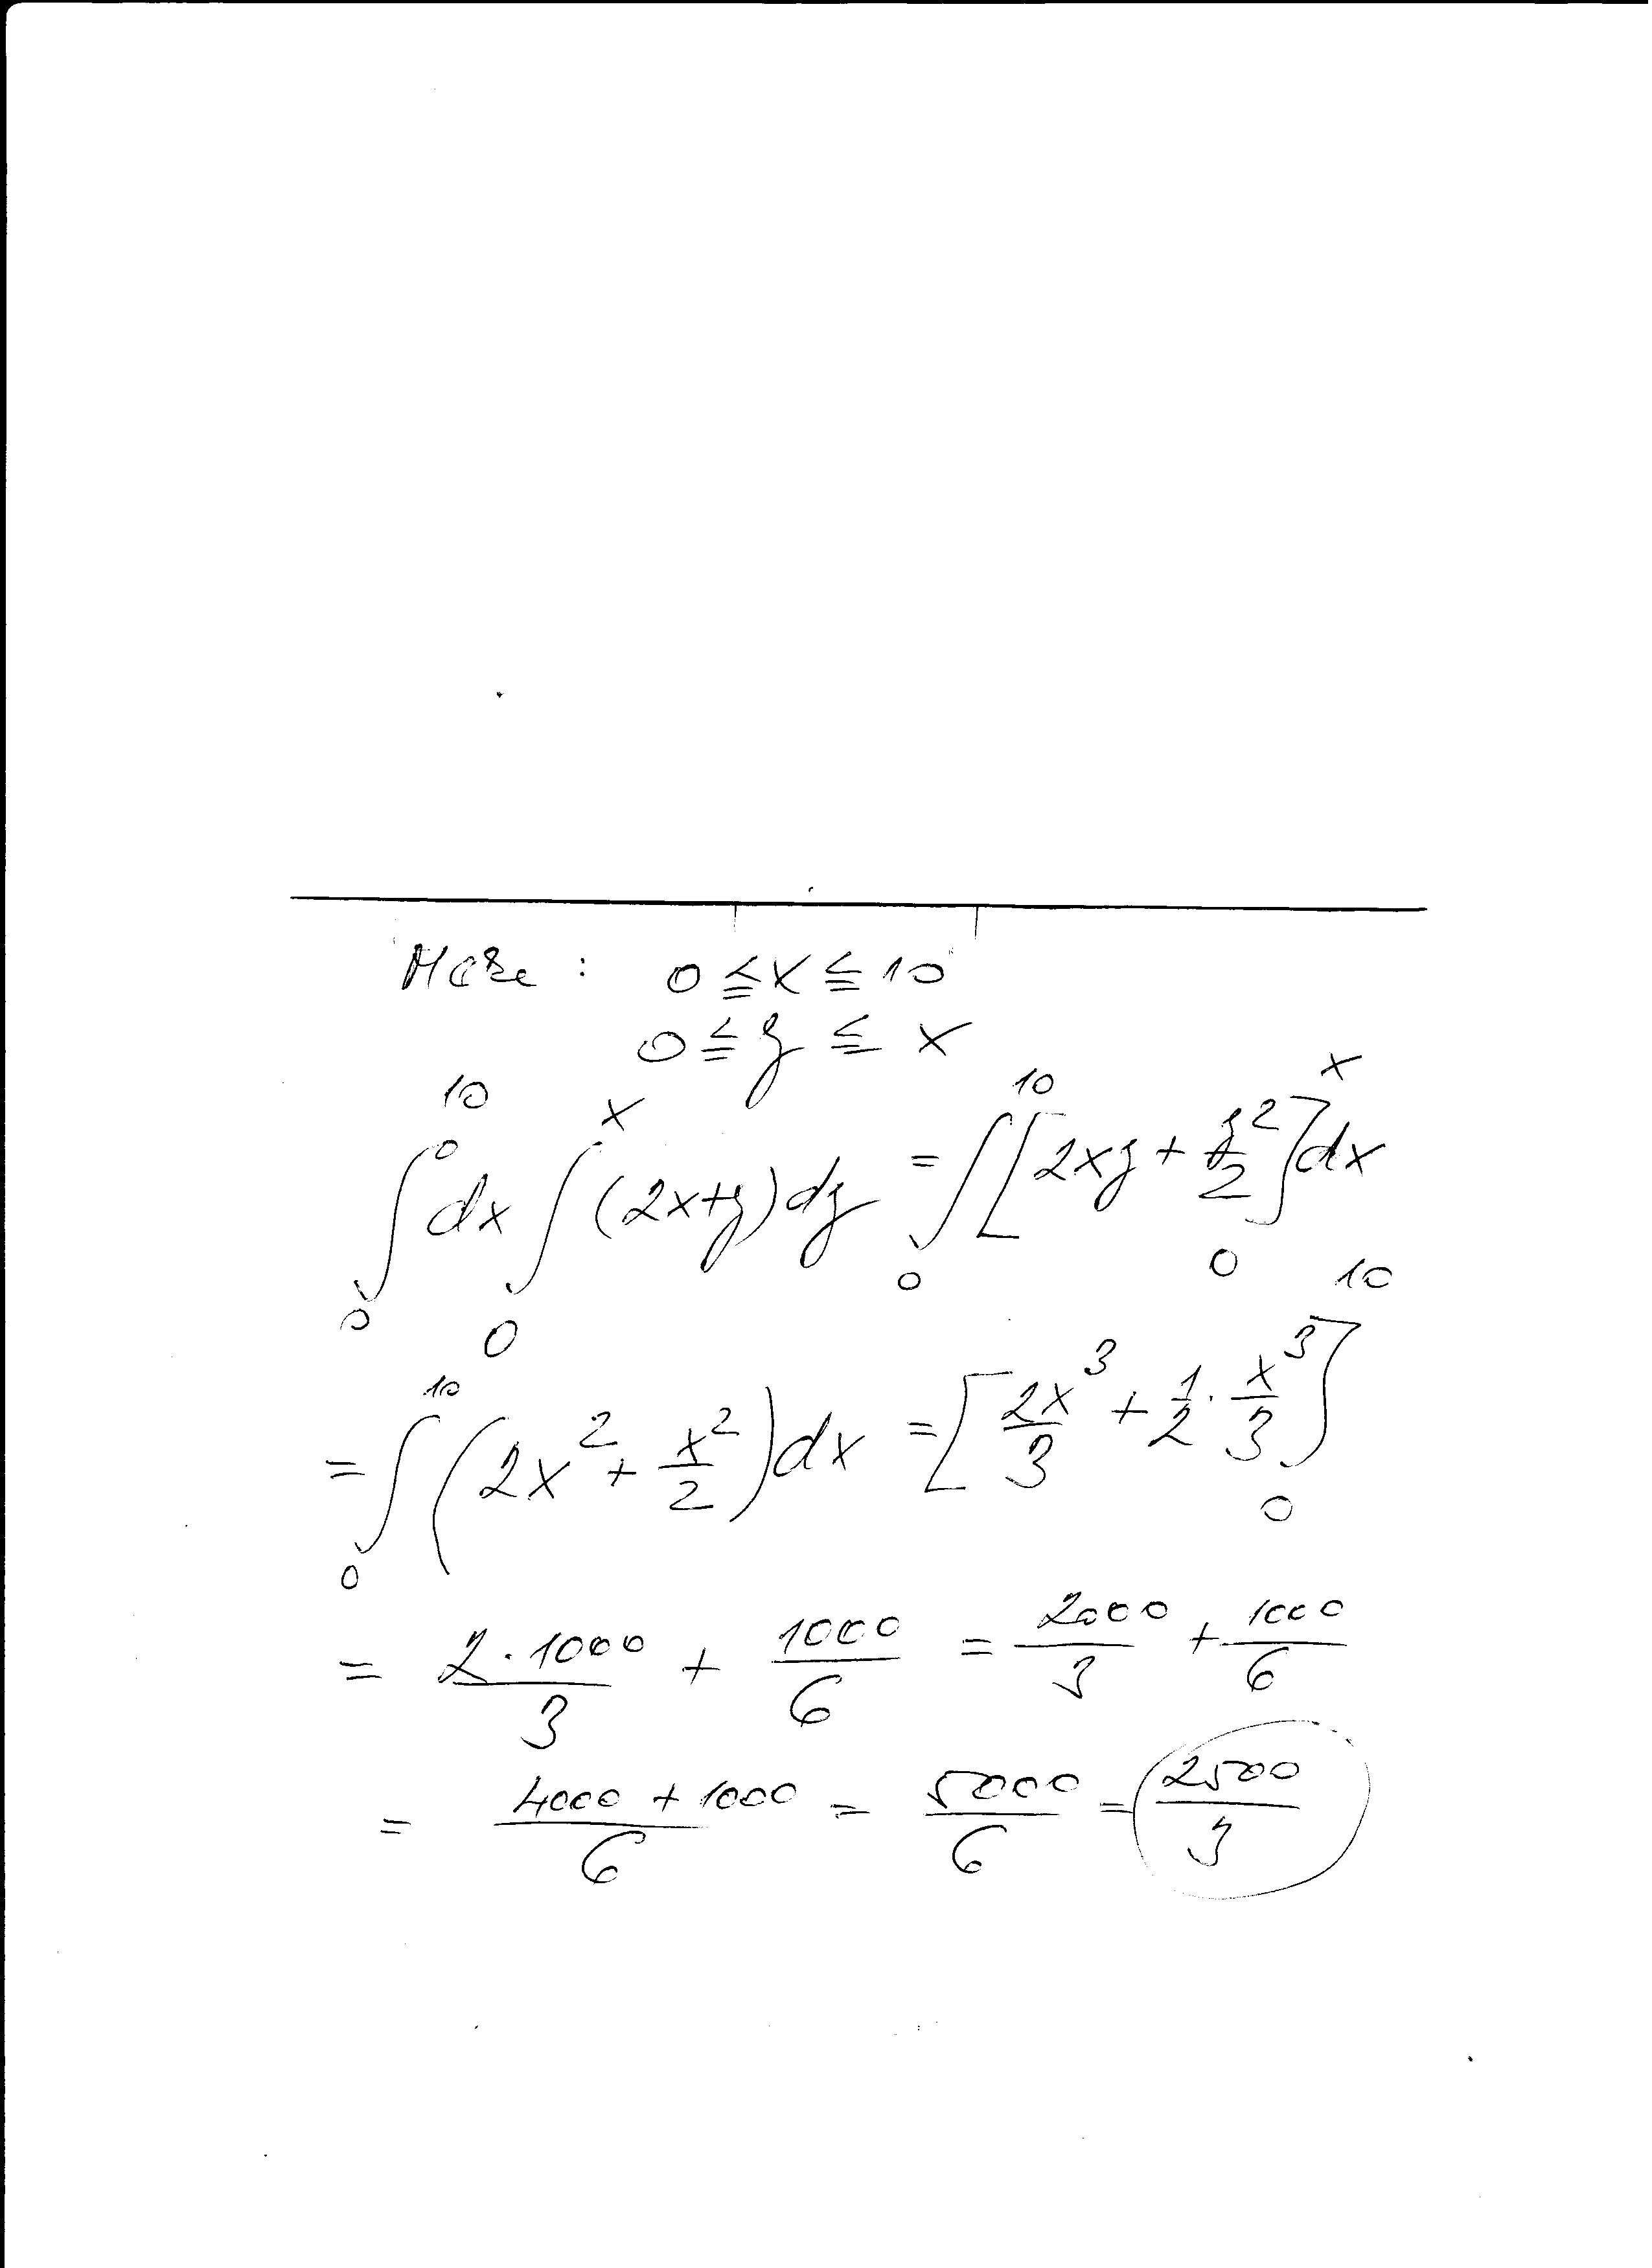 : 0 ≦ x ≦ 10
0 ≦ y ≦ x
∫₀¹⁰ dx ∫₀ˣ (2x+y) dy = ∫₀¹⁰ [2xy + y²/2]₀ˣ dx
= ∫₀¹⁰ (2x² + x²/2) dx = [2x³/3 + 1/2 · x³/3]₀¹⁰
= 2·1000/3 + 1000/6 = 2000/3 + 1000/6
= 4000 + 1000/6 = 5000/6 = 2500/3